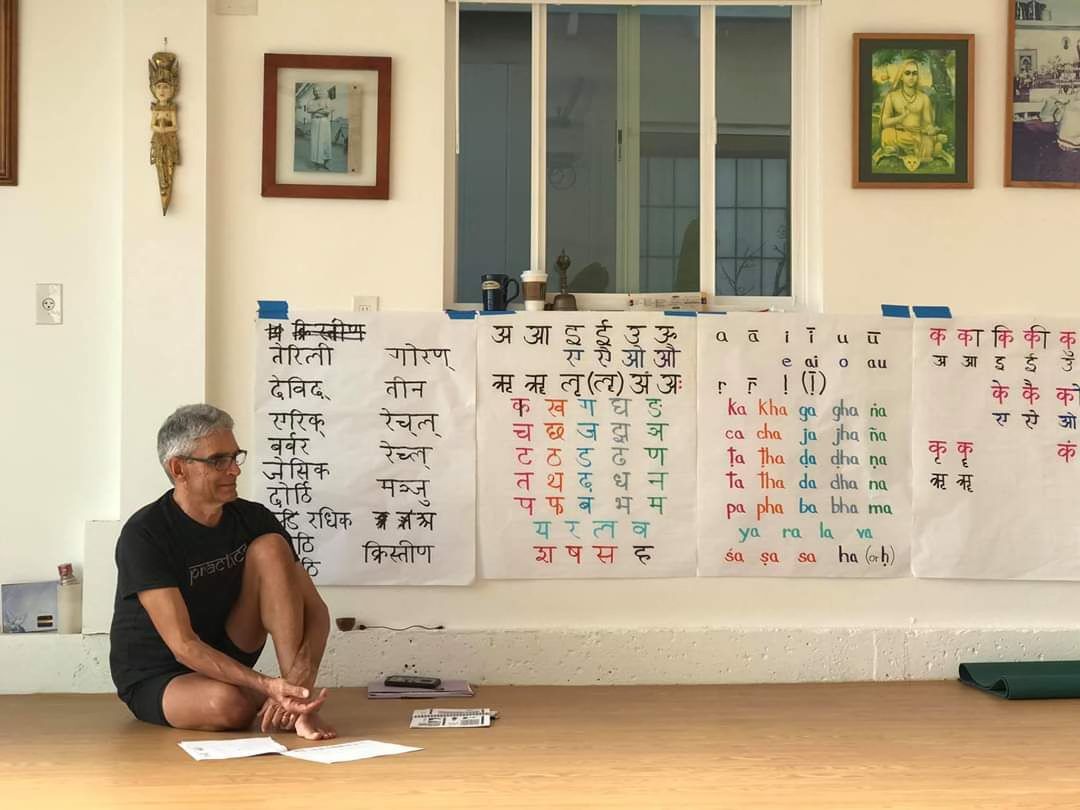 क्रिस्तीण
तेरिली गोरण्
देविद् तीन
एरिक् रेच्ल्
बर्बर रेच्ल्
जेसिक मञ्जु
दोर्ठि
रधिक
ठि क्रिस्तीण
अ आ इ ई उ ऊ
ए ऐ ओ औ
ऋ ॠ ऌ (ॡ) अं अः
क ख ग घ ङ
च छ ज झ ञ
ट ठ ड ढ ण
त थ द ध न
प फ ब भ म
य र ल व
श ष स ह
a ā i ī u ū
e ai o au
ṛ ṝ ḷ (ḹ)
ka kha ga gha ṅa
ca cha ja jha ña
ṭa ṭha ḍa ḍha ṇa
ta tha da dha na
pa pha ba bha ma
ya ra la va
śa ṣa sa ha (or ḥ)
क का कि की कु
अ आ इ ई उ
के कै को
ए ऐ ओ
कृ कॄ कं
ऋ ॠ
practice